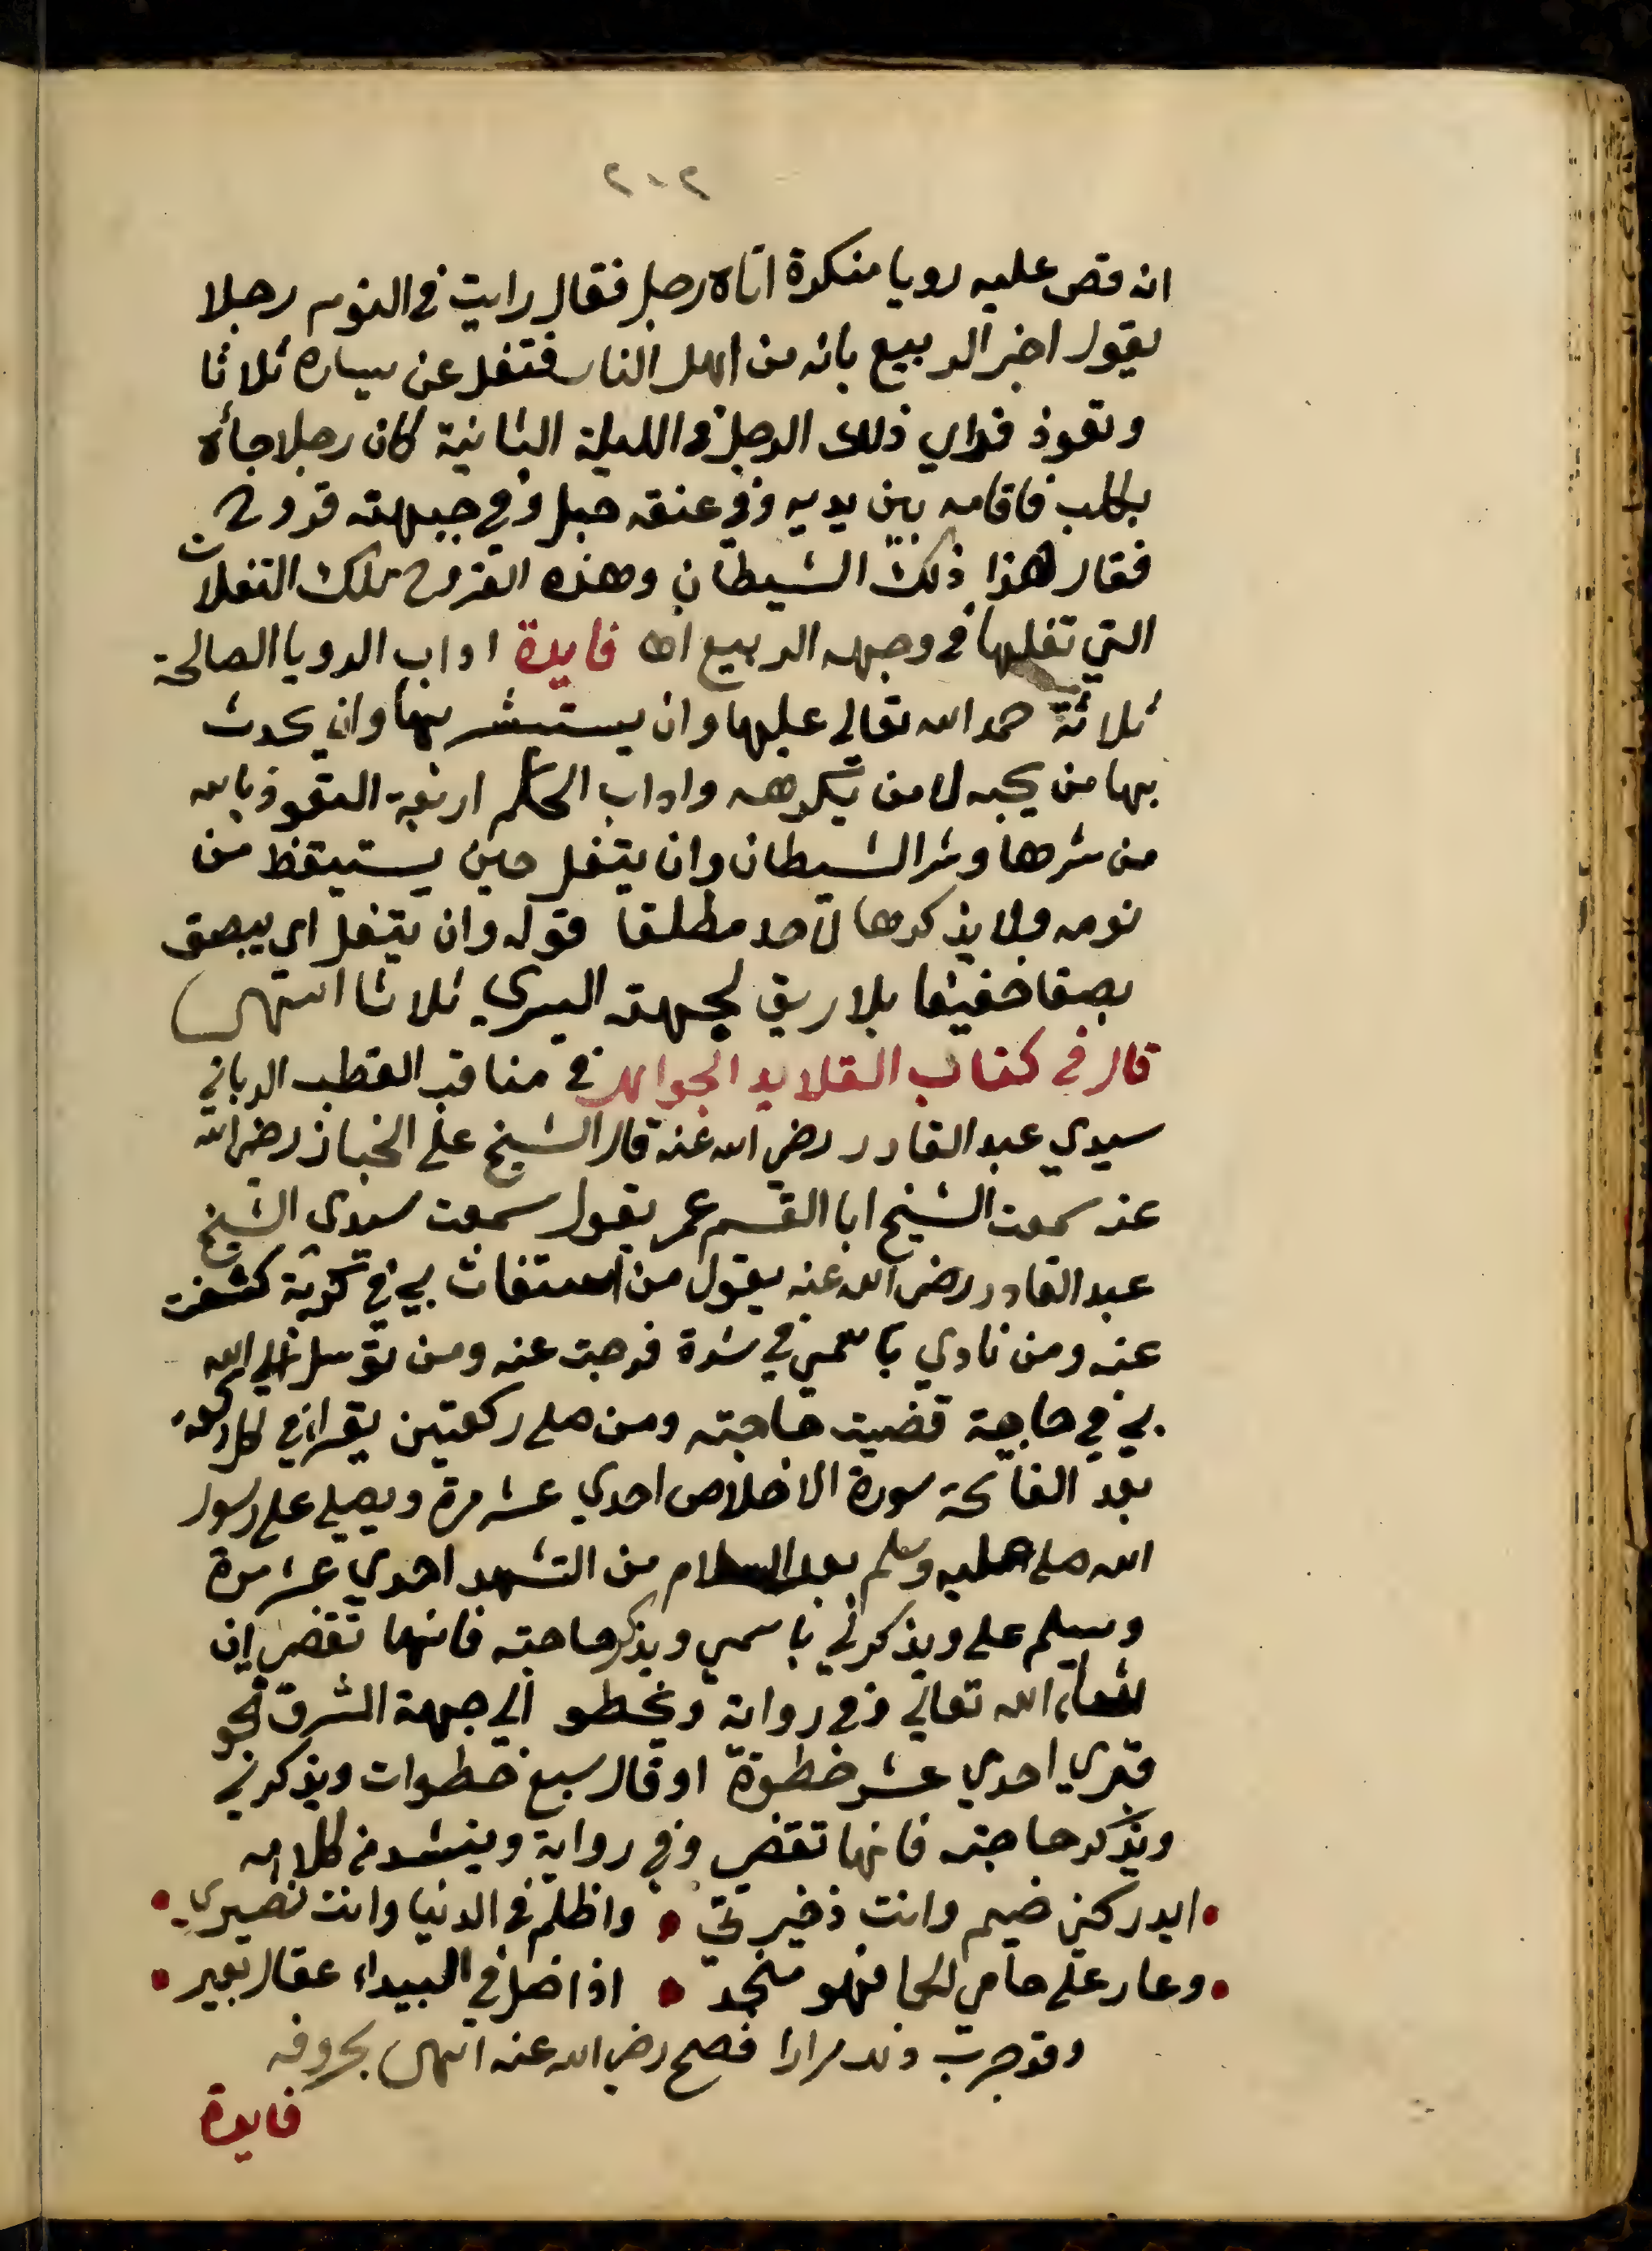 ٢٠٢
انه قص عليه رويا منكرة اتاه رجل فقال رايت في النوم رجلا
يقول اخبر الربيع بانه من اهل النار فتفل عن يساره ثلاثا
وتعوذ فراي ذلك الرجل في الليلة الثانية كان رجلا جأه
بكلب فاقامه بين يديه وفي عنقه حبل وفي جبهته قروح
فقال هذا ذلك الشيطان وهذه القروح تلك التفلات
التي تفلها في وجهه الربيع اه فايدة اداب الرويا الصالحة
ثلاثة حمد الله تعالي عليها وان يستبشر بها وان يحدث
بها من يحبه لا من يكرهه واداب الحلم اربعة التعوذ بالله
من شرها وشر الشيطان وان يتفل حين يستيقظ من
نومه ولا يذكرها لاحد مطلقا قوله وان يتفل اي يبصق
بصقا خفيفا بلا ريق لجهته اليسري ثلاثا انتهى
قال في كتاب القلايد الجواهر في مناقب القطب الرباني
سيدي عبد القادر رضي الله عنه قال الشيخ علي الخباز رضي الله
عنه سمعت الشيخ ابا القسم عمر يقول سمعت سيدي الشيخ
عبد القادر رضي الله عنه يقول من استغاث بي في كربة كشفت
عنه ومن نادي باسمي في شدة فرجت عنه ومن توسل الي الله
بي في حاجة قضيت حاجته ومن صلي ركعتين يقرا في كل ركعة
بعد الفاتحة سورة الاخلاص احدي عشر مرة ويصلي علي رسول
الله صلي عليه وسلم بعد السلام من التشهد احدي عشر مرة
ويسلم علي ويذكرني باسمي ويذكر حاجته فانها تقضي ان
شاء الله تعالي وفي رواية ويخطو الي جهة الشرق نحو
قبري احدي عشر خطوة او قال سبع خطوات ويذكرني
ويذكر حاجته فانها تقضي وفي رواية وينشد من كلامه
ايدركني ضيم وانت ذخيرتي • واظلم في الدنيا وانت نصيري
وعار علي حامي الحما فهو منجد • اذا ضل في البيداء عقال بعير
وقد جربت ذلك مرارا فصح رضي الله عنه انتهى بحروفه
فايدة